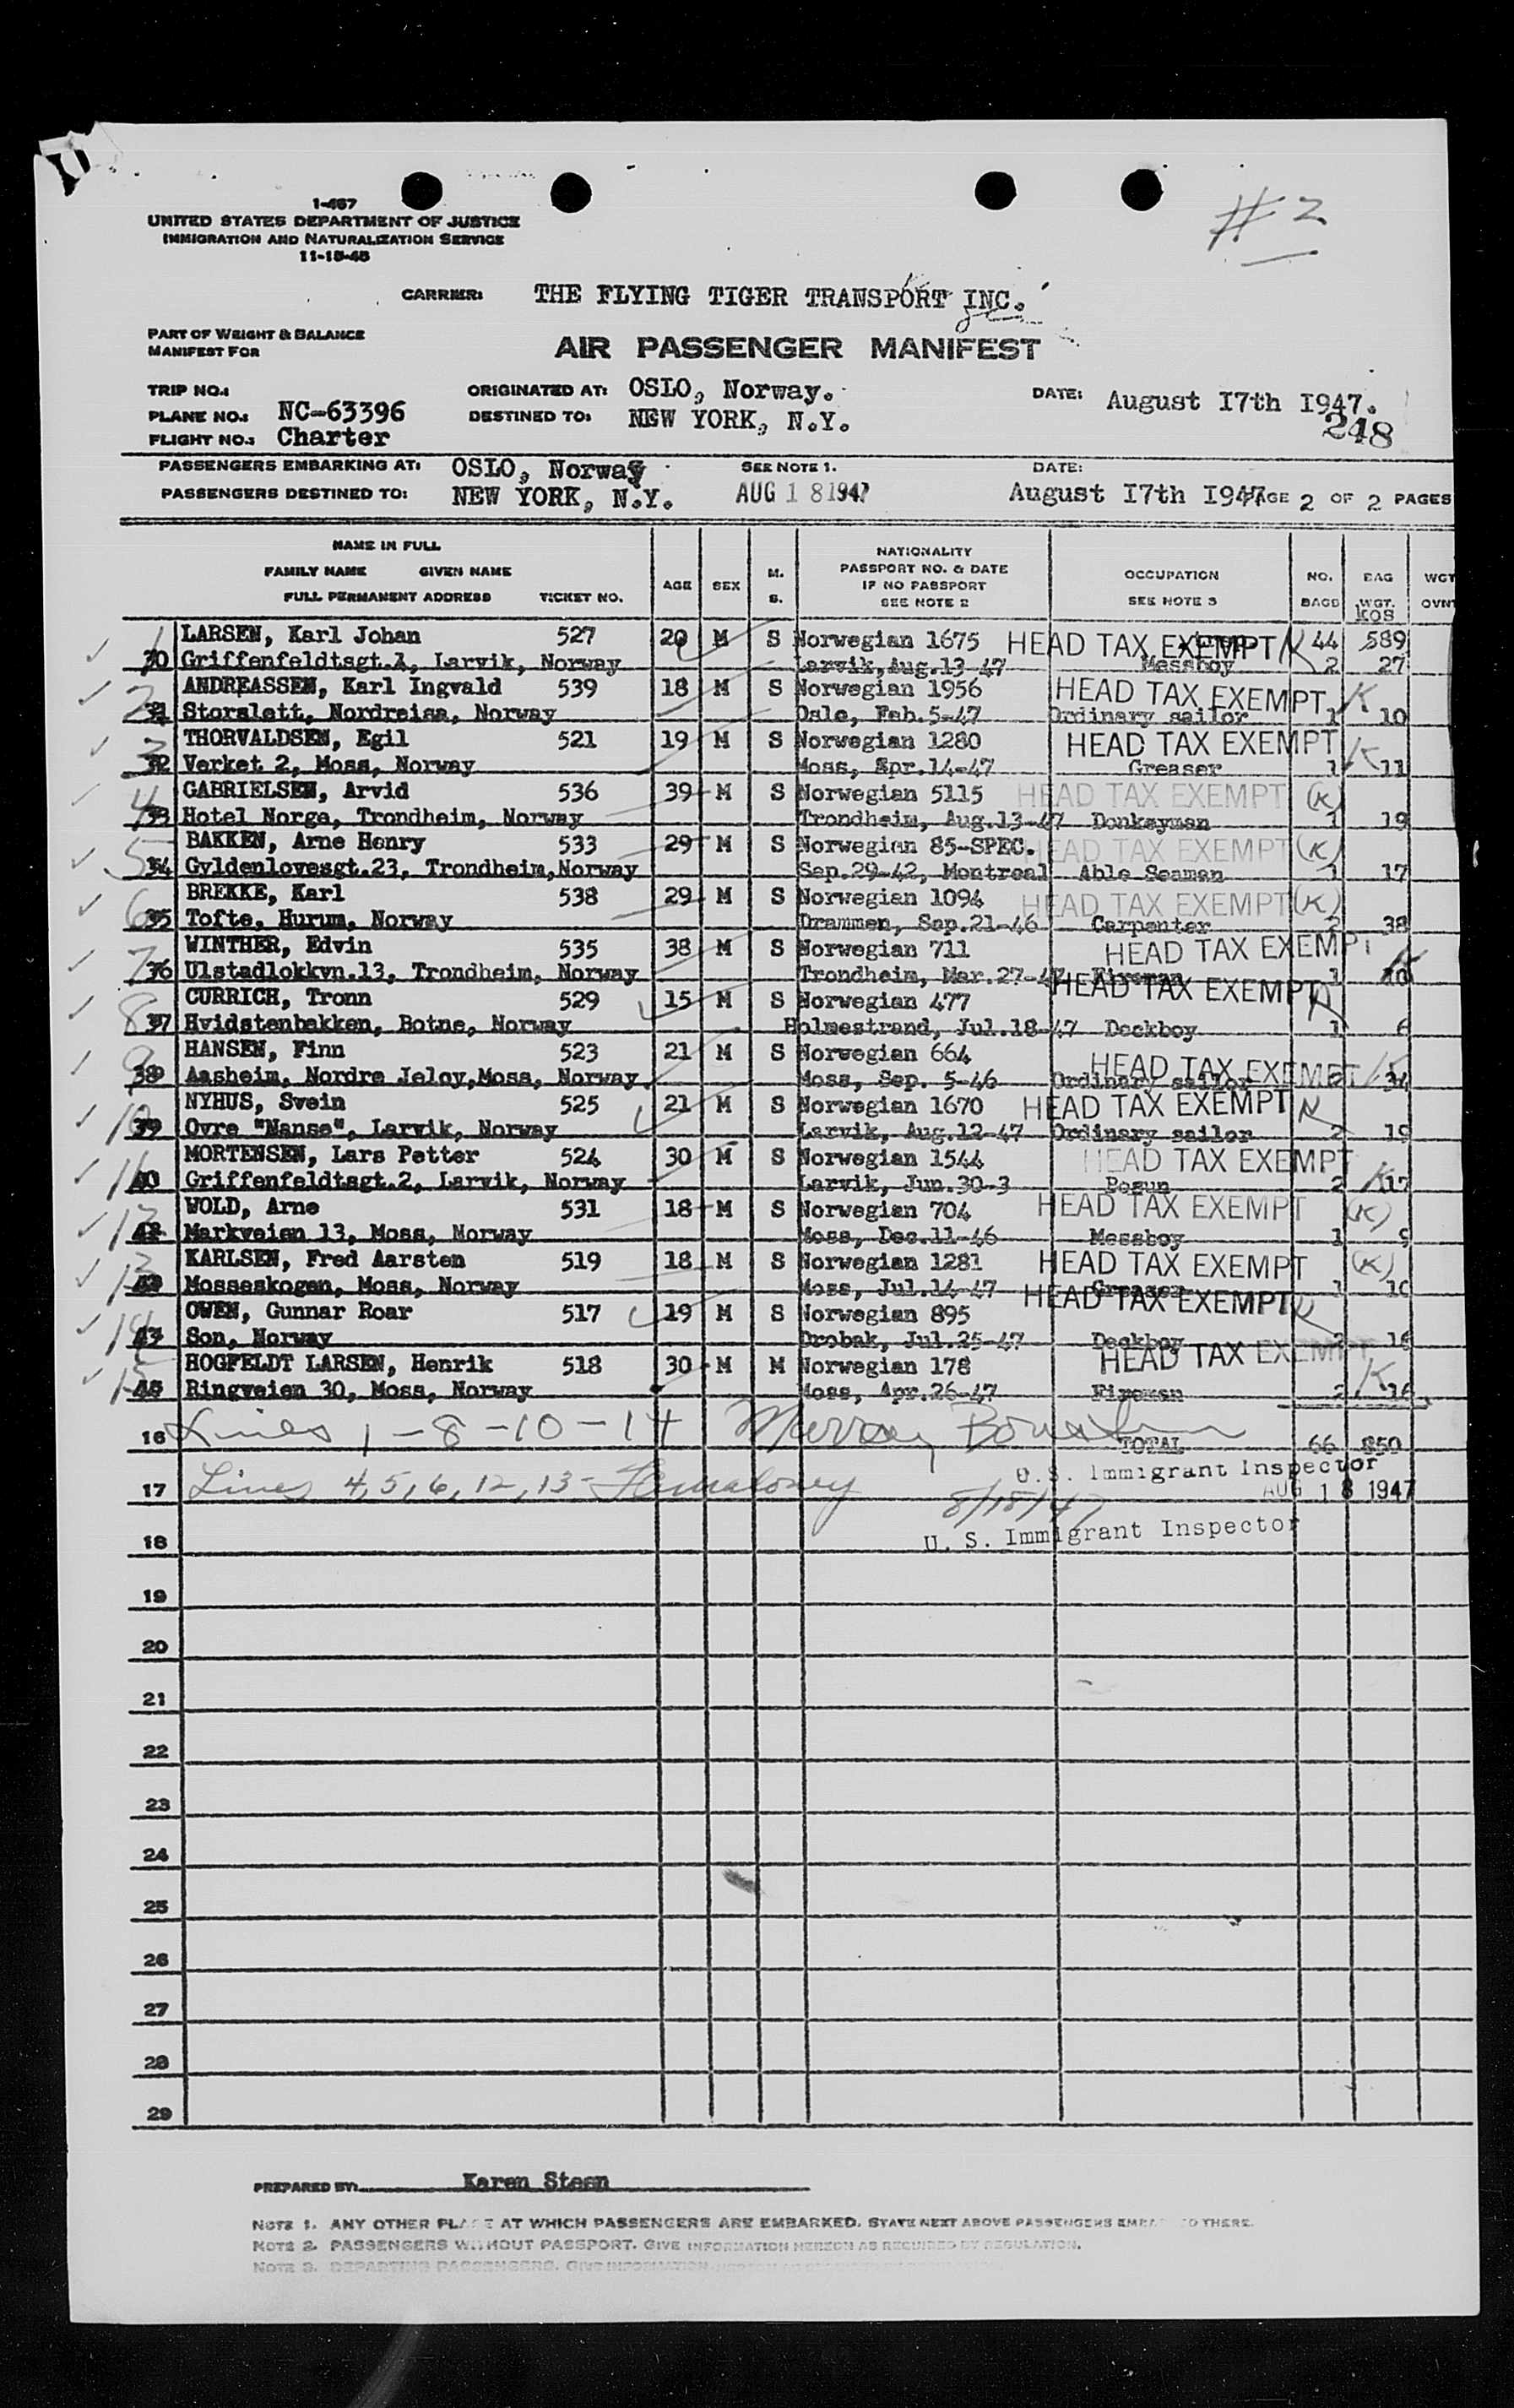 #2
1-467
UNITED STATES DEPARTMENT OF JUSTICE
IMMIGRATION AND NATURALIZATION SERVICE
11-15-45
CARRIER: THE FLYING TIGER TRANSPORT INC.
PART OF WEIGHT & BALANCE
MANIFEST FOR
AIR PASSENGER MANIFEST
TRIP NO.: ORIGINATED AT: OSLO, Norway. DATE: August I7th I947.
PLANE NO.: NC-63396 DESTINED TO: NEW YORK, N.Y.
FLIGHT NO.: Charter 248
PASSENGERS EMBARKING AT: OSLO, Norway SEE NOTE 1. DATE:
PASSENGERS DESTINED TO: NEW YORK, N.Y. AUG 18 1947 August I7th I947 PAGE 2 OF 2 PAGES
NAME IN FULL
FAMILY NAME GIVEN NAME
FULL PERMANENT ADDRESS TICKET NO. AGE SEX M. S. NATIONALITY PASSPORT NO. & DATE IF NO PASSPORT SEE NOTE 2 OCCUPATION SEE NOTE 3 NO. BAGS BAG WGT. KOS WGT OVN
1 LARSEN, Karl Johan 527 20 M S Norwegian 1675 HEAD TAX EXEMPT 44 589
30 Griffenfeldtsgt.2, Larvik, Norway Larvik, Aug.13-47 Messboy 2 27
2 ANDREASSEN, Karl Ingvald 539 18 M S Norwegian 1956 HEAD TAX EXEMPT K
31 Storslett, Nordreisa, Norway Oslo, Feb.5-47 Ordinary sailor 1 10
3 THORVALDSEN, Egil 521 19 M S Norwegian 1280 HEAD TAX EXEMPT K
32 Verket 2, Moss, Norway Moss, Apr.14-47 Greaser 1 11
4 GABRIELSEN, Arvid 536 39 M S Norwegian 5115 HEAD TAX EXEMPT (K)
33 Hotel Norge, Trondheim, Norway Trondheim, Aug.13-47 Donkeyman 1 19
5 BAKKEN, Arne Henry 533 29 M S Norwegian 85-SPEC. HEAD TAX EXEMPT (K)
34 Gyldenlovesgt.23, Trondheim,Norway Sep.29-42, Montreal Able Seaman 1 17
6 BREKKE, Karl 538 29 M S Norwegian 1094 HEAD TAX EXEMPT (K)
35 Tofte, Hurum, Norway Drammen, Sep.21-46 Carpenter 2 38
7 WINTHER, Edvin 535 38 M S Norwegian 711 HEAD TAX EXEMPT K
36 Ulstadlokkvn.13, Trondheim, Norway Trondheim, Mar.27-47 Fireman 1 10
8 CURRICH, Tronn 529 15 M S Norwegian 477 HEAD TAX EXEMPT
37 Hvidstenbakken, Botne, Norway Holmestrand, Jul.18-47 Deckboy 1 6
9 HANSEN, Finn 523 21 M S Norwegian 664 HEAD TAX EXEMPT
38 Aasheim, Nordre Jeloy,Moss, Norway Moss, Sep. 5-46 Ordinary sailor 2 34
10 NYHUS, Svein 525 21 M S Norwegian 1670 HEAD TAX EXEMPT
39 Ovre "Nanse", Larvik, Norway Larvik, Aug.12-47 Ordinary sailor 2 19
11 MORTENSEN, Lars Petter 524 30 M S Norwegian 1544 HEAD TAX EXEMPT K
40 Griffenfeldtsgt.2, Larvik, Norway Larvik, Jun.30-3 Bosun 2 17
12 WOLD, Arne 531 18 M S Norwegian 704 HEAD TAX EXEMPT (K)
Markveien 13, Moss, Norway Moss, Dec.11-46 Messboy 1 9
13 KARLSEN, Fred Aarsten 519 18 M S Norwegian 1281 HEAD TAX EXEMPT (K)
Mosseskogen, Moss, Norway Moss, Jul.14-47 Greaser 1 10
14 OWEN, Gunnar Roar 517 19 M S Norwegian 895 HEAD TAX EXEMPT
43 Son, Norway Drobak, Jul.25-47 Deckboy 2 16
15 HOGFELDT LARSEN, Henrik 518 30 M M Norwegian 178 HEAD TAX EXEMPT K
Ringveien 30, Moss, Norway Moss, Apr.26-47 Fireman 2 16
16 Lines 1-8-10-14 Murray TOTAL 66 850
U.S. Immigrant Inspector
17 Lines 4,5,6,12,13- 8/18/47 AUG 18 1947
U. S. Immigrant Inspector
18
19
20
21
22
23
24
25
26
27
28
29
PREPARED BY: Karen Steen
NOTE 1. ANY OTHER PLACE AT WHICH PASSENGERS ARE EMBARKED. STATE NEXT ABOVE PASSENGERS EMBARKED THERE.
NOTE 2. PASSENGERS WITHOUT PASSPORT. GIVE INFORMATION HEREON AS REQUIRED BY REGULATION.
NOTE 3. DEPARTING PASSENGERS. GIVE INFORMATION